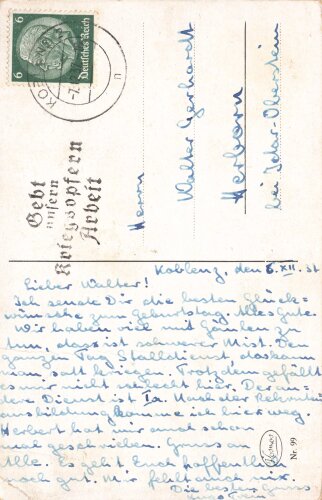 6
6
Deutsches Reich
KOBLENZ
-7.
n
Gebt
unsern
Kriegsopfern
Arbeit
Herrn
Walter Gerhardt
Herborn
bei Idar-Oberstein
Koblenz, den 6.XII.37
Lieber Walter!
Ich sende Dir die besten Glück-
wünsche zum Geburtstag. Alles Gute.
Wir haben viel mit Gäulen zu
tun, das ist schwerer Mist. Den
ganzen Tag Stalldienst, das kann
man satt kriegen. Trotzdem gefällt
es mir nicht schlecht hier. Der an-
dere Dienst ist Ia. Nach der Rekruten
ausbildung komme ich hier weg.
Herbert hat mir auch schon
mal geschrieben. Gruss an
Alle. Es geht Euch hoffentlich
noch gut. Mir fehlt auch nix.
Die besten Grüsse
Nr. 99